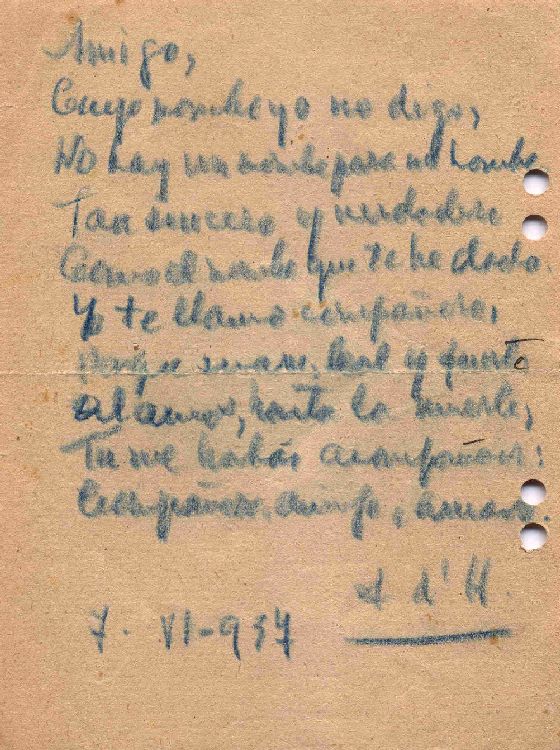 Amigo,
Cuyo nombre yo no digo,
No hay un nombre para un hombre
Tan sincero y verdadero
Como el nombre que te he dado.
Yo te llamo compañero,
Porque suave, leal y fuerte
al amor, hasta la muerte,
Tu me habás acompañar:
Compañero, amigo, amado.
d'H.
7-VI-937